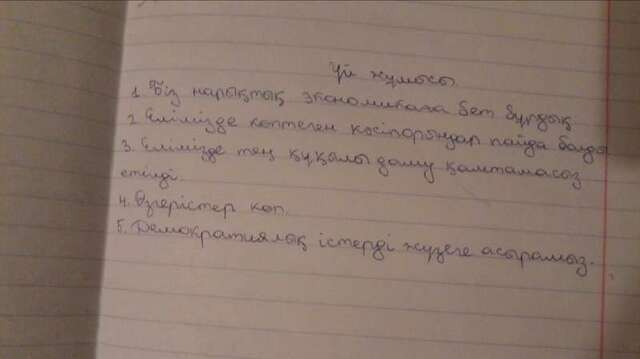 Үй жұмысы.
1. Біз нарықтық экономикаға бет бұрдық
2. Елімізде көптеген кәсіпорындар пайда болды
3. Елімізде тең құқылы даму қамтамасыз
етілді.
4. Өзгерістер көп.
5. Демократиялық істерді жүзеге асырамыз.